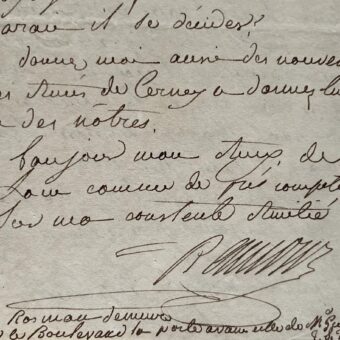 il se décider?
donnez moi aussi des nouvel
Amis de Cernay a donnez lu
des nôtres.
bonjour mon Ami, de
Loin comme de près compte
Sur ma constente Amitié
Rosman demeure
le Boulevard la porte avant celle de Mr